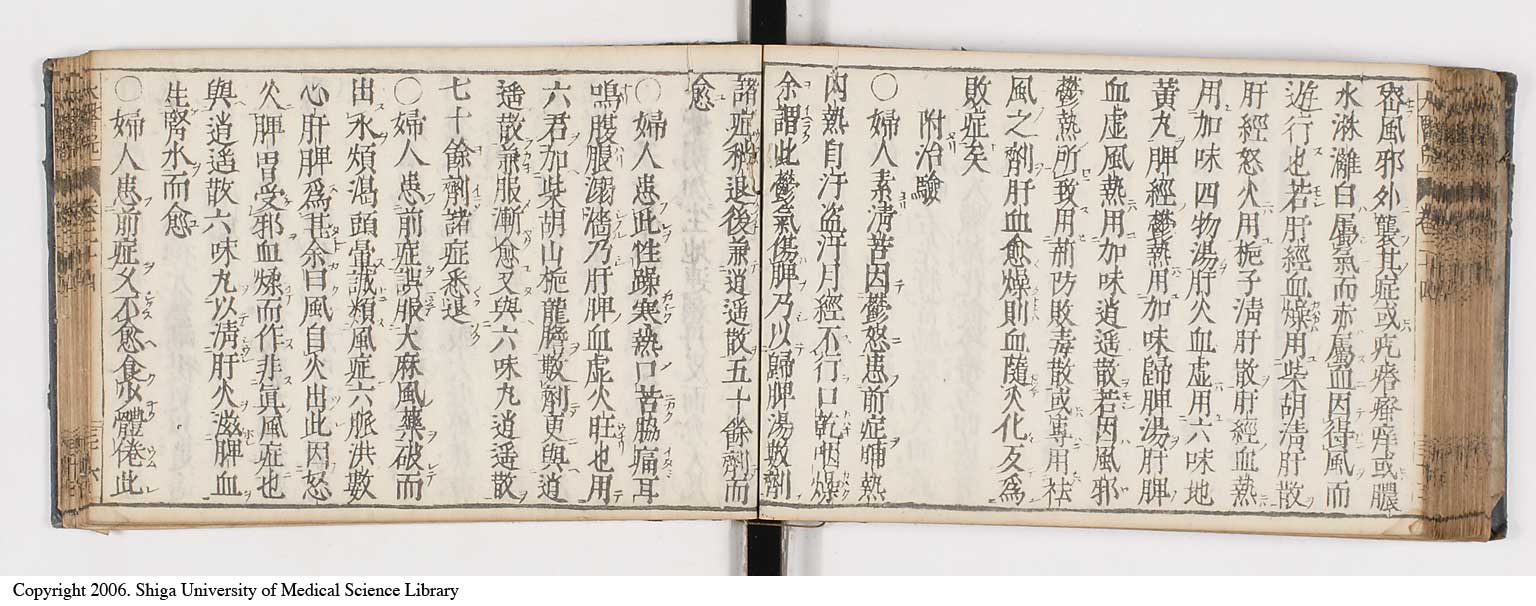 密風邪外襲其症或疙瘩瘙痒或膿
水淋漓白屬氣而赤屬血因得風而
遊行也若肝經血燥用柴胡清肝散
肝經怒火用梔子清肝散肝經血熱
用加味四物湯肝火血虚用六味地
黄丸脾經鬱熱用加味歸脾湯肝脾
血虚風熱用加味逍遥散若因風邪
鬱熱所致用荊防敗毒散或專用祛
風之劑肝血愈燥則血隨火化反為
敗症矣
附治驗
〇婦人素清苦因鬱怒患前症晡熱
内熱自汗盗汗月經不行口乾咽燥
余謂此鬱氣傷脾乃以歸脾湯數劑
諸症稍退後兼逍遥散五十餘劑而
愈
〇婦人患此性躁寒熱口苦脇痛耳
鳴腹脹溺濇乃肝脾血虚火旺也用
六君加柴胡山梔龍膽數劑更與逍
遥散兼服漸愈又與六味丸逍遥散
七十餘劑諸症悉退
〇婦人患前症誤服大麻風藥破而
出水煩渇頭暈誠類風症六脈洪數
心肝脾為甚余曰風自火出此因怒
火脾胃受邪血燥而作非眞風症也
與逍遥散六味丸以清肝火滋脾血
生腎水而愈
〇婦人患前症久不愈食少體倦此
Copyright 2006. Shiga University of Medical Science Library